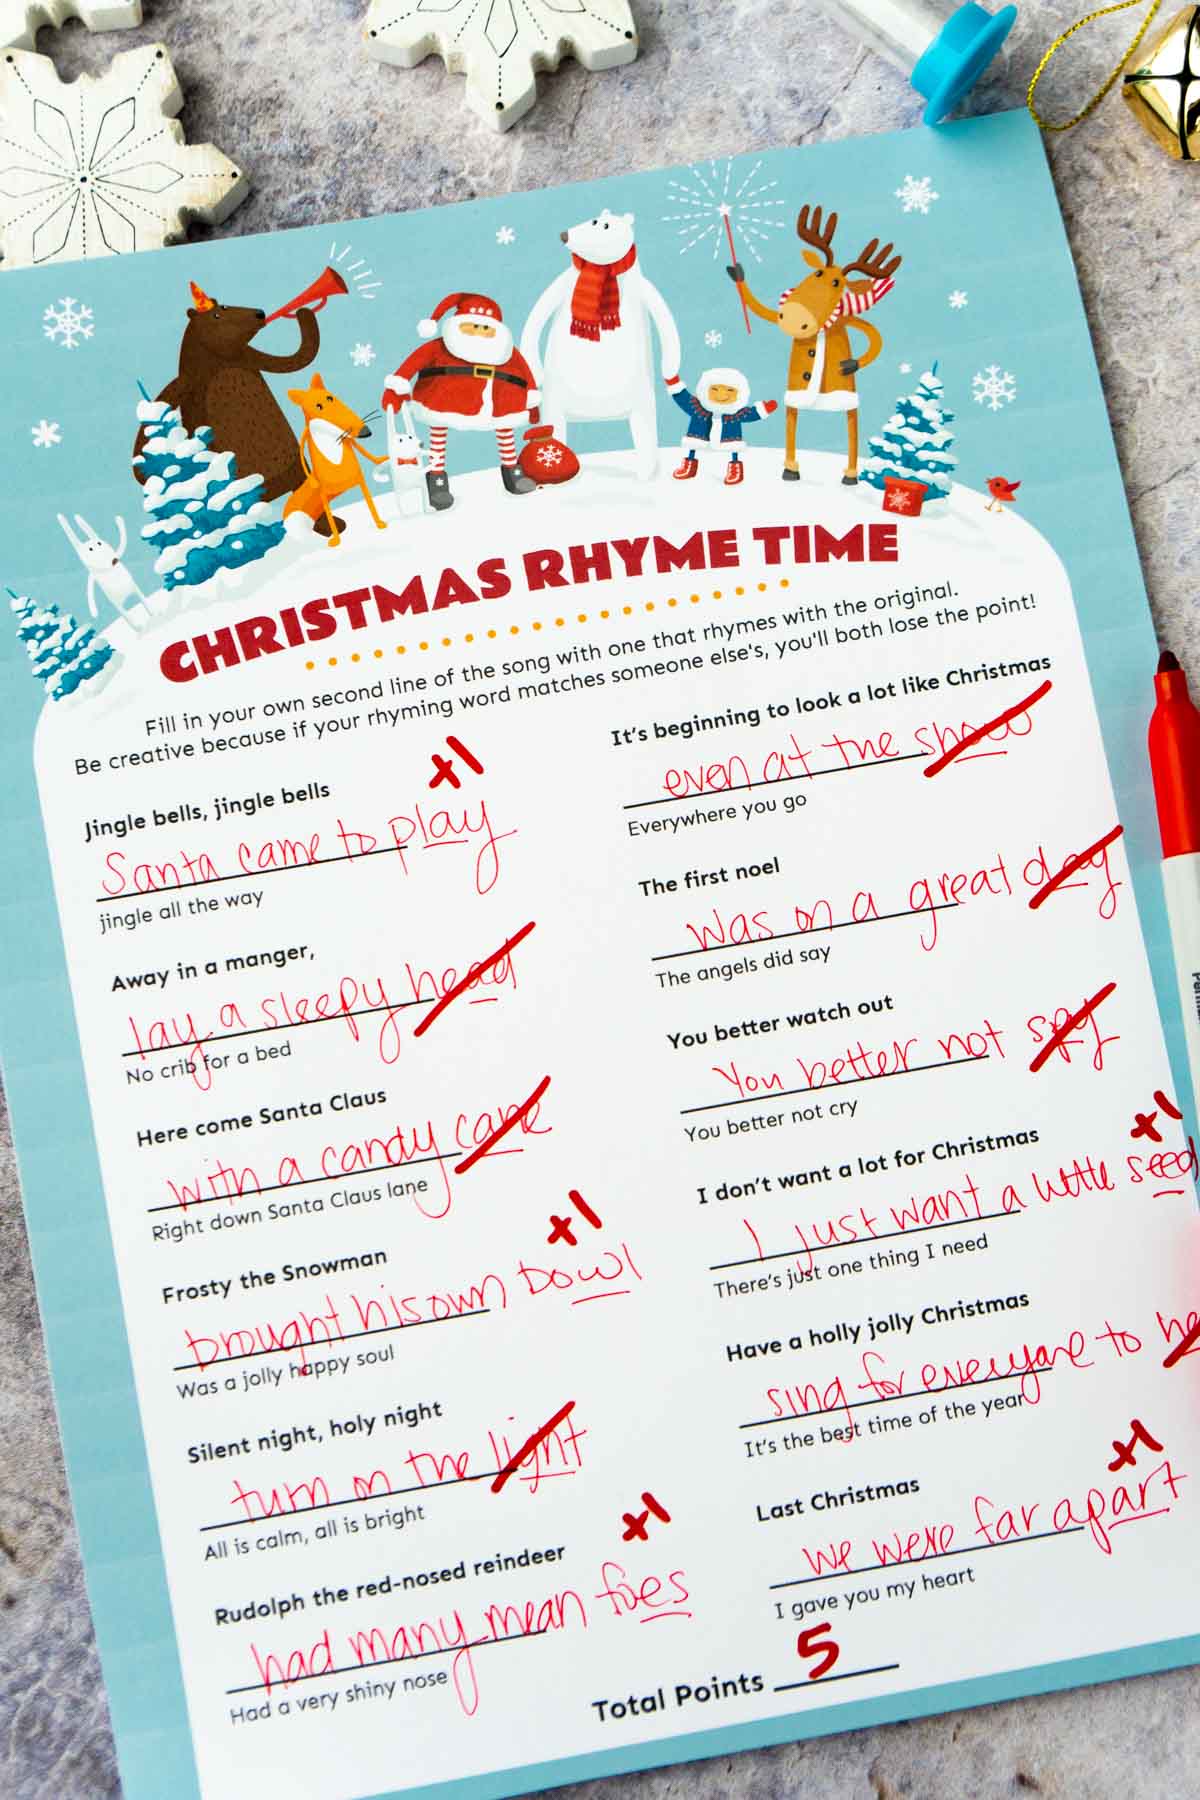 CHRISTMAS RHYME TIME
Fill in your own second line of the song with one that rhymes with the original.
Be creative because if your rhyming word matches someone else's, you'll both lose the point!
Jingle bells, jingle bells
+1
Santa came to play
jingle all the way
Away in a manger,
lay a sleepy head
No crib for a bed
Here come Santa Claus
with a candy cane
Right down Santa Claus lane
Frosty the Snowman
+1
brought his own bowl
Was a jolly happy soul
Silent night, holy night
turn on the light
All is calm, all is bright
Rudolph the red-nosed reindeer
+1
had many mean foes
Had a very shiny nose
It's beginning to look a lot like Christmas
even at the show
Everywhere you go
The first noel
was on a great day
The angels did say
You better watch out
You better not spy
You better not cry
I don't want a lot for Christmas
+1
I just want a little seed
There's just one thing I need
Have a holly jolly Christmas
sing for everyone to
It's the best time of the year
Last Christmas
+1
we were far apart
I gave you my heart
Total Points 5